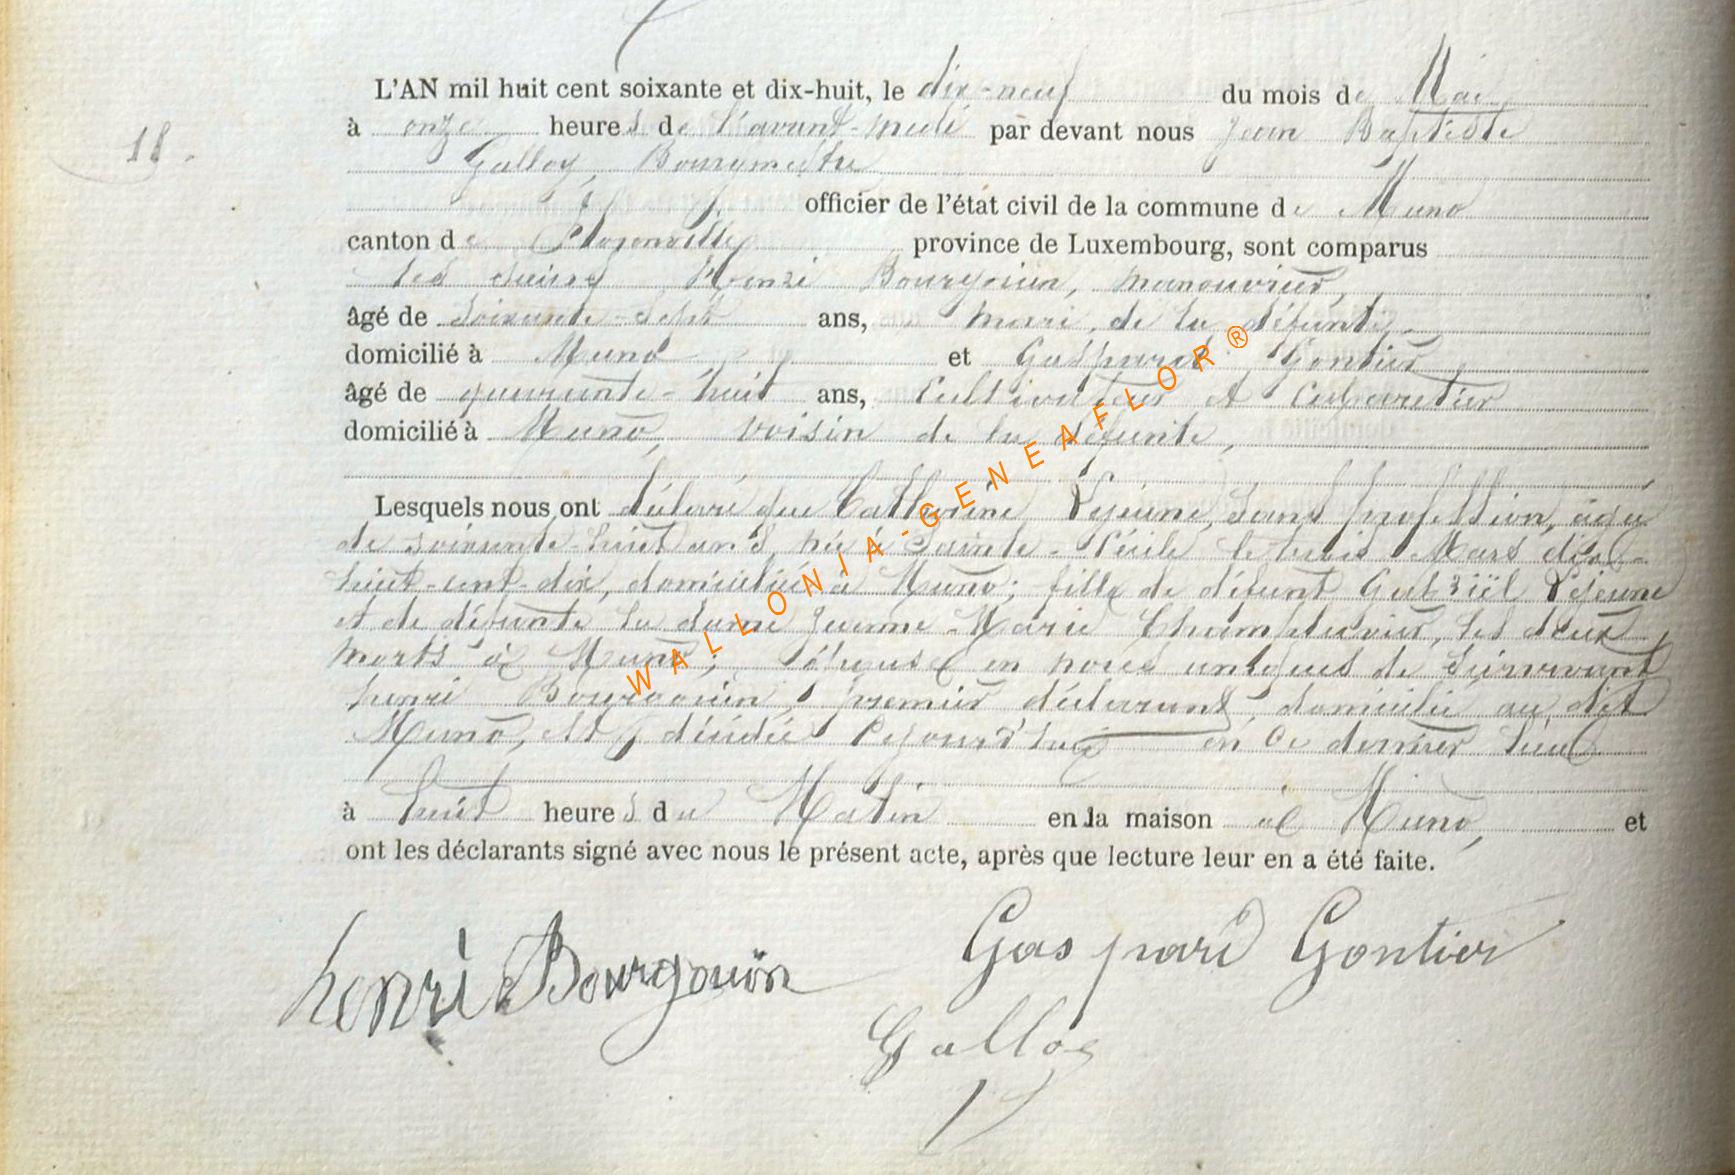 L'AN mil huit cent soixante et dix-huit, le dix-neuf du mois de Mai
18. à onze heures de l'avant-midi par devant nous Jean Baptiste
Galloy, Bourgmestre
officier de l'état civil de la commune de Muno
canton de Florenville province de Luxembourg, sont comparus
les sieurs Henri Bourgouin, manouvrier,
âgé de soixante-sept ans, mari de la défunte
domicilié à Muno et Gaspard Gontier
âgé de quarante-huit ans, Cultivateur et Cabaretier
domicilié à Muno, voisin de la défunte,
Lesquels nous ont déclaré que Catherine Lejeune, sans profession, âgée
de soixante-huit ans, née à Sainte-Cécile le trois Mars dix-
huit-cent-dix, domiciliée à Muno; fille de défunt Gabriël Lejeune
et de défunte la dame Jeanne-Marie les deux
morts à Muno; épouse en noces de survivant
henri Bourgouin, premier déclarant, domicilié au dit
Muno, est décédée cejourd'hui en ce dernier lieu
à huit heures du Matin en la maison à Muno, et
ont les déclarants signé avec nous le présent acte, après que lecture leur en a été faite.
henri Bourgouin Gaspard Gontier
Galloy
WALLONIA-GENEAFLOR®